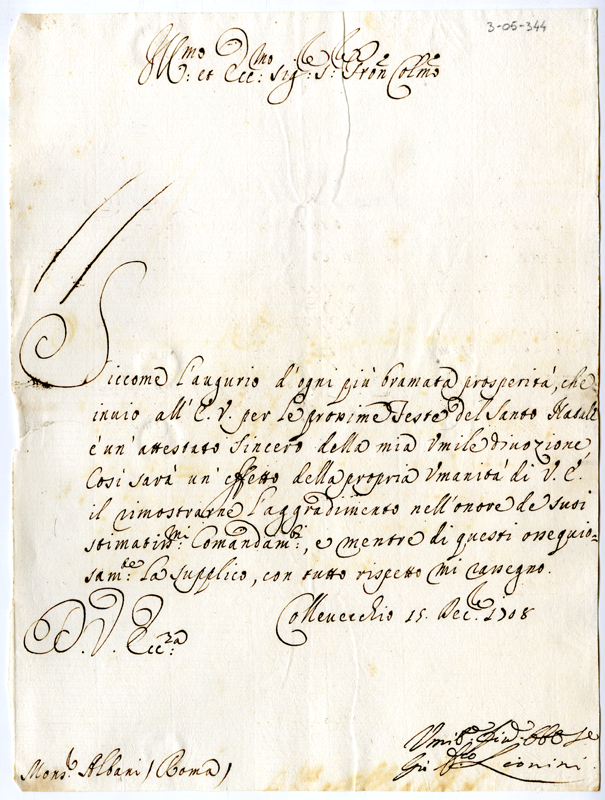 3-05-344
Ill.mo et Ecc.mo Sig.r S.r Pron Colmo
Siccome l'augurio d'ogni più bramata prosperità, che
inuio all'E. V. per le prossime Feste del Santo Natale
è un' attestato sincero della mia Vmile diuozione,
Così sarà un' effetto della propria Vmanità di V. E.
il rimostrarne l'aggradimento nell'onore de suoi
stimatiss.mi Comandam.ti, e mentre di questi ossequio=
sam.te La supplico, con tutto rispetto mi rassegno.
D. V. Ecc.za
Colleuecchio 15. Dec.bre 1708
Vmil.o Diu.o Obb. Se
Leonini
Mons.r Albani (Roma)